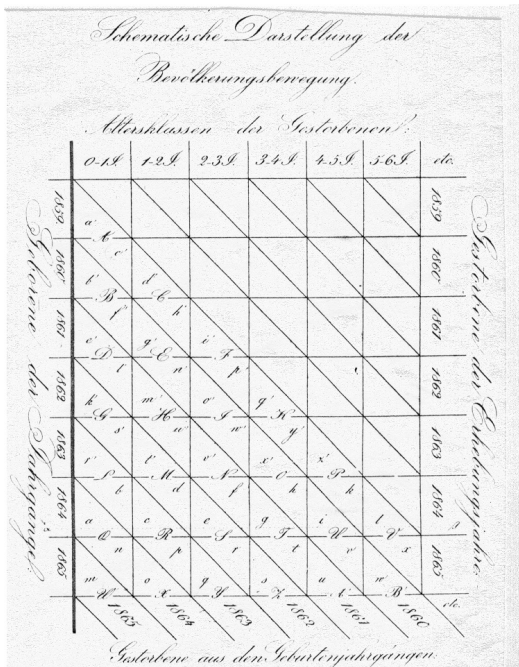 Schematische Darstellung der
Bevölkerungsbewegung.
Altersklassen der Gestorbenen:
0-1 J. 1-2 J. 2-3 J. 3-4 J. 4-5 J. 5-6 J. etc.
Geborene der Jahrgänge
1859 1860 1861 1862 1863 1864 1865
Gestorbene der Erhebungsjahre
1859 1860 1861 1862 1863 1864 1865
a'
A
c'
b' d'
B C
f' h'
e' g' i'
D E F
l' n' p'
k' m' o' q'
G H I K
s' u' w' y'
r' t' v' x' z'
L M N O P
b d f h k
a c e g i l
Q R S T U V
n p r t v x
m o q s u w
W X Y Z A' B' etc.
1865 1864 1863 1862 1861 1860
Gestorbene aus den Geburtenjahrgängen.